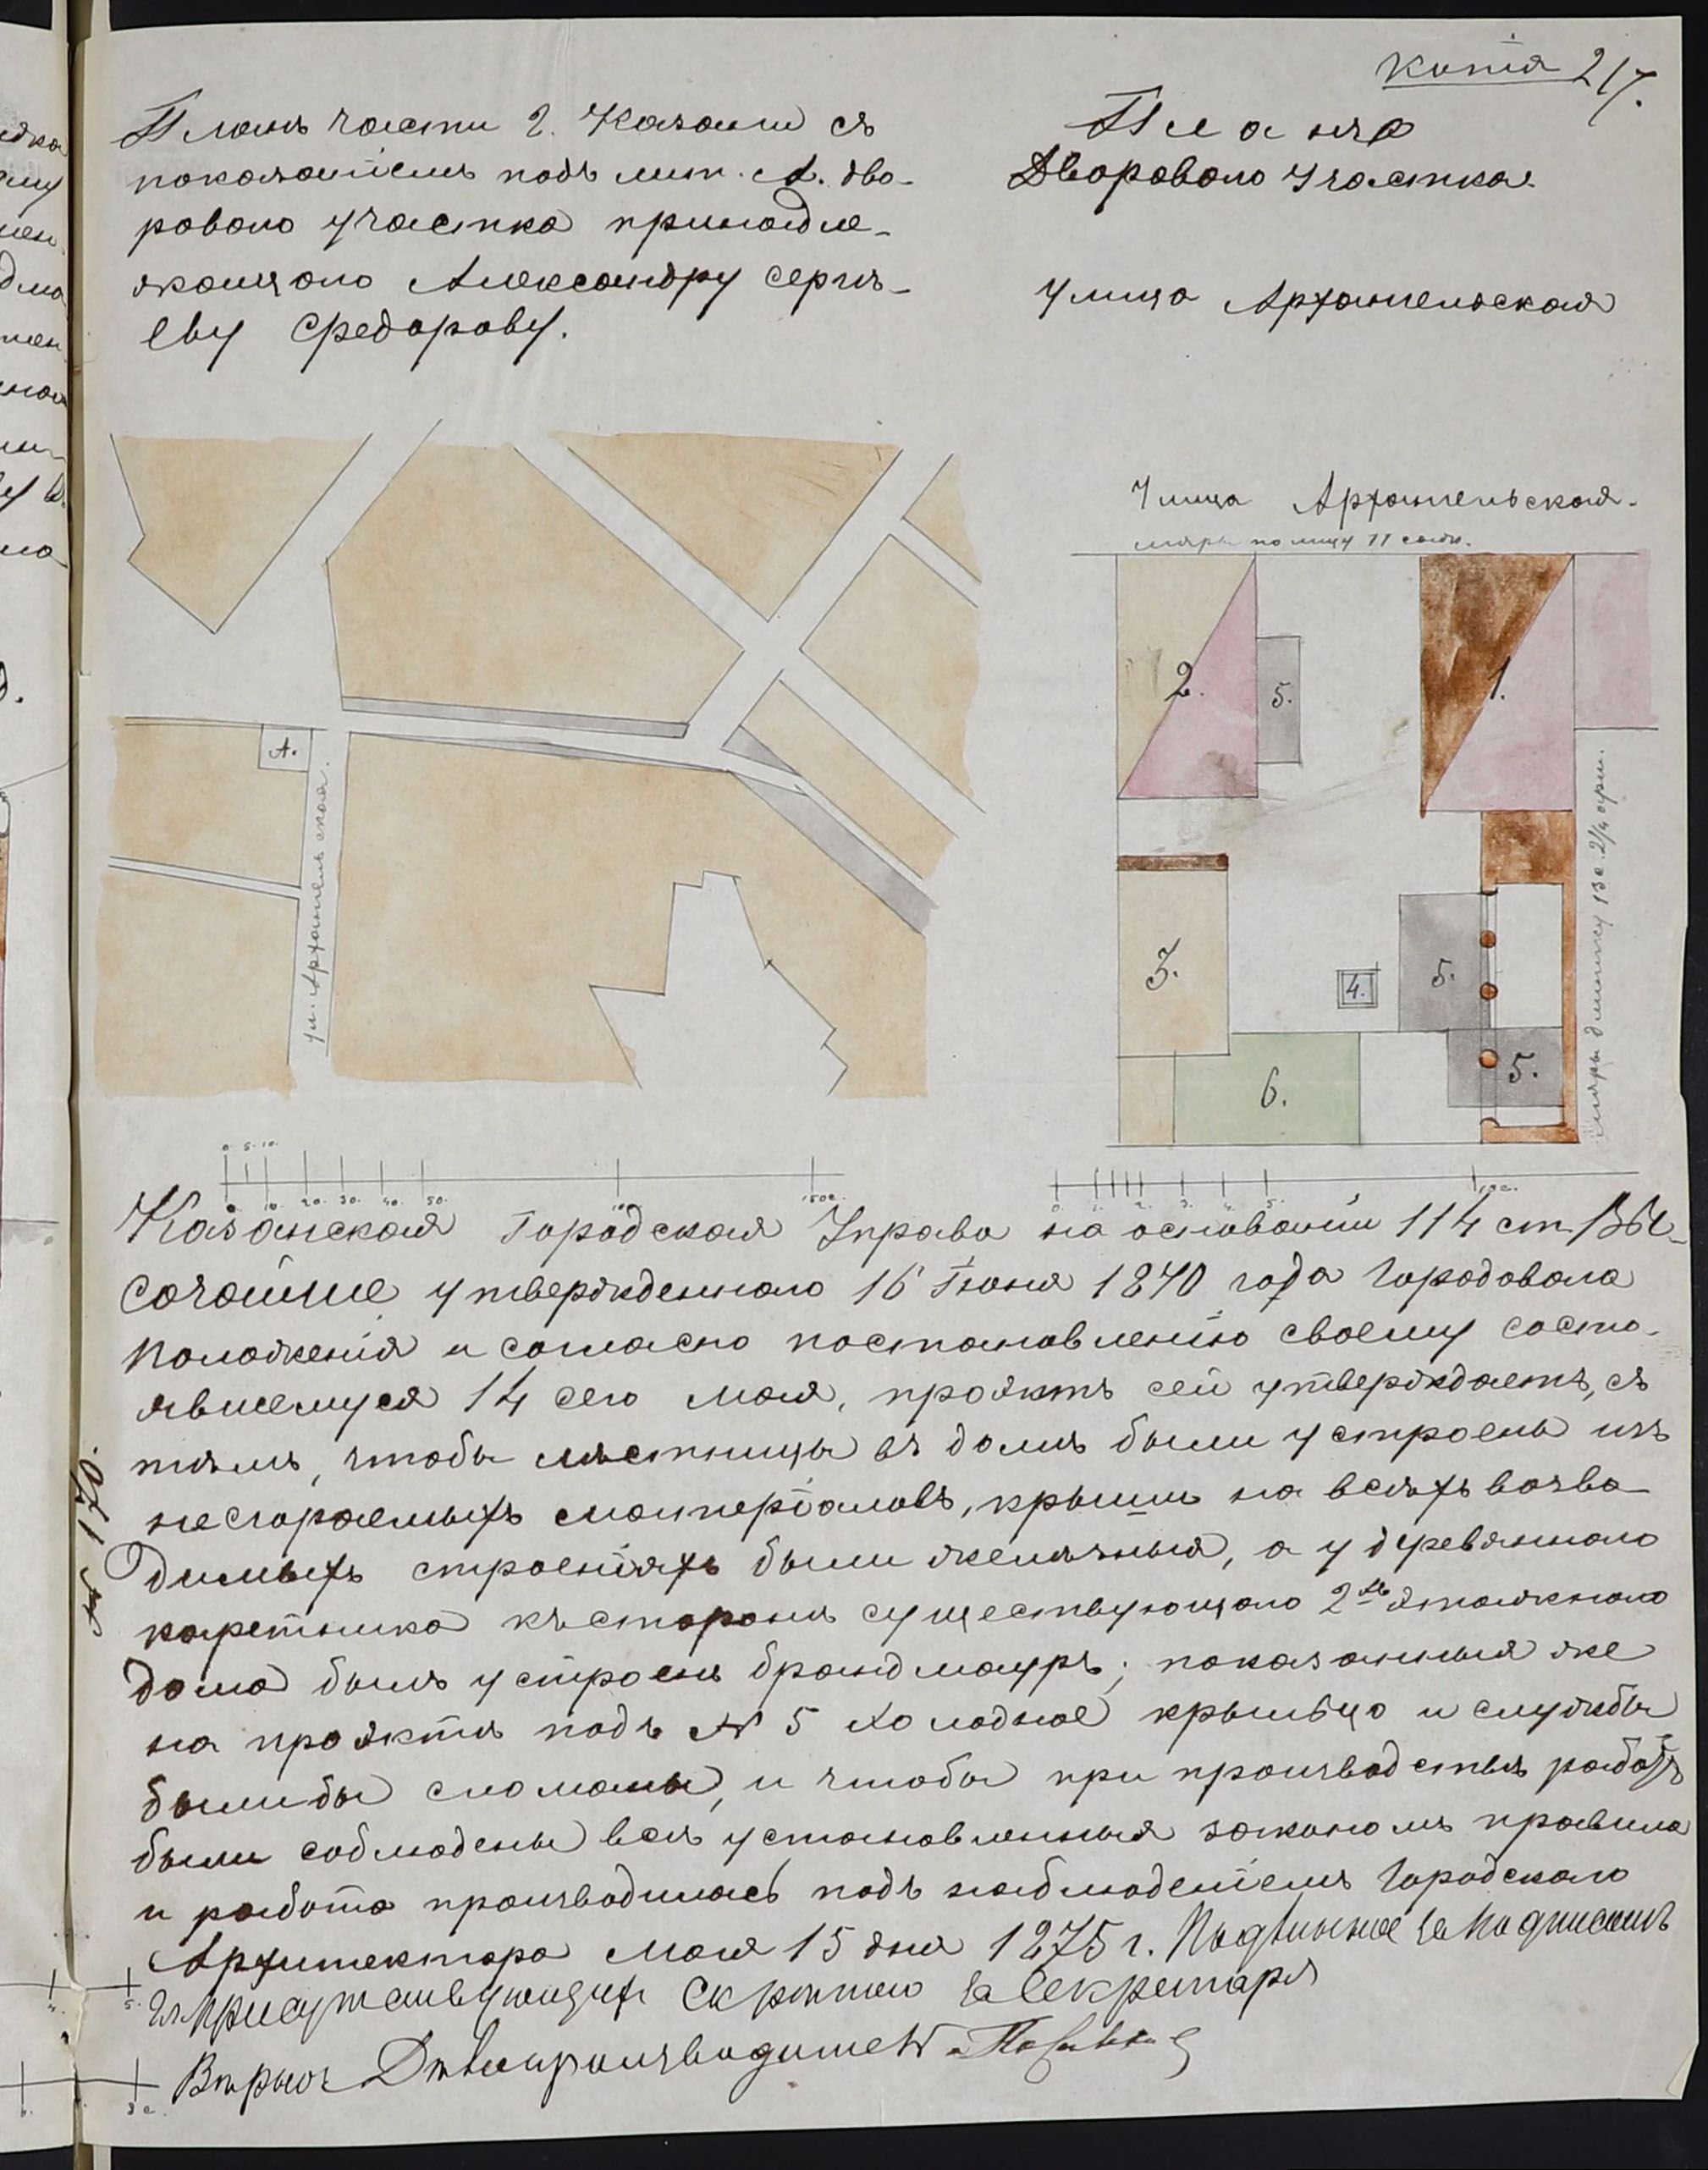 копія 217.
Планъ части г. Казани съ
показаніемъ подъ лит. А. дво-
роваго участка принадле-
жащаго Александру Сергѣ-
еву Федорову.
Планъ
Двороваго участка
улица Архангельская
А.
ул. Архангельская.
Улица Архангельская.
мѣры по лицу 11 саж.
2.
5.
1.
3.
4.
5.
5.
6.
мѣры длиннику 13 с. 2/4 арш.
0 5. 10.
0. 10. 20. 30. 40. 50.
0. 1. 2. 3. 4. 5. 10 с.
№ 170.
Казанская Городская Управа на основаніи 114 ст. Вы-
сочайше утвержденнаго 16 Іюня 1870 года Городоваго
положенія и согласно постановленію своему состо-
явшемуся 14 сего мая, проэктъ сей утверждаетъ, съ
тѣмъ, чтобы лѣстницы въ домѣ были устроены изъ
несгораемыхъ матеріаловъ, крыши на всѣхъ возво-
димыхъ строеніяхъ были желѣзныя, а у деревяннаго
каретника къ сторонѣ существующаго 2хъ этажнаго
дома былъ устроенъ брандмауръ; показанныя же
на проэктѣ подъ № 5 холодное крыльцо и службы
были бы сломаны, и чтобы при производствѣ работъ
были соблюдены всѣ установленныя закономъ правила
и работа производилась подъ наблюденіемъ Городскаго
Архитектора мая 15 дня 1875 г. Подлинное за подписомъ
Гг. Присутствующихъ Скрѣпою за Секретаря
Вѣрно: Дѣлопроизводитель